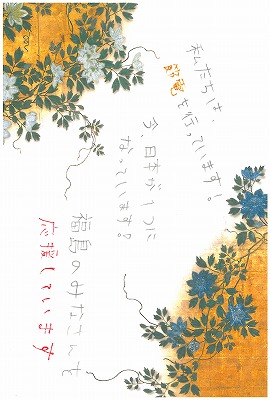 私たちは、
節電を行っています!
今、日本が1つに
なっています!
福島のみなさんを
応援しています